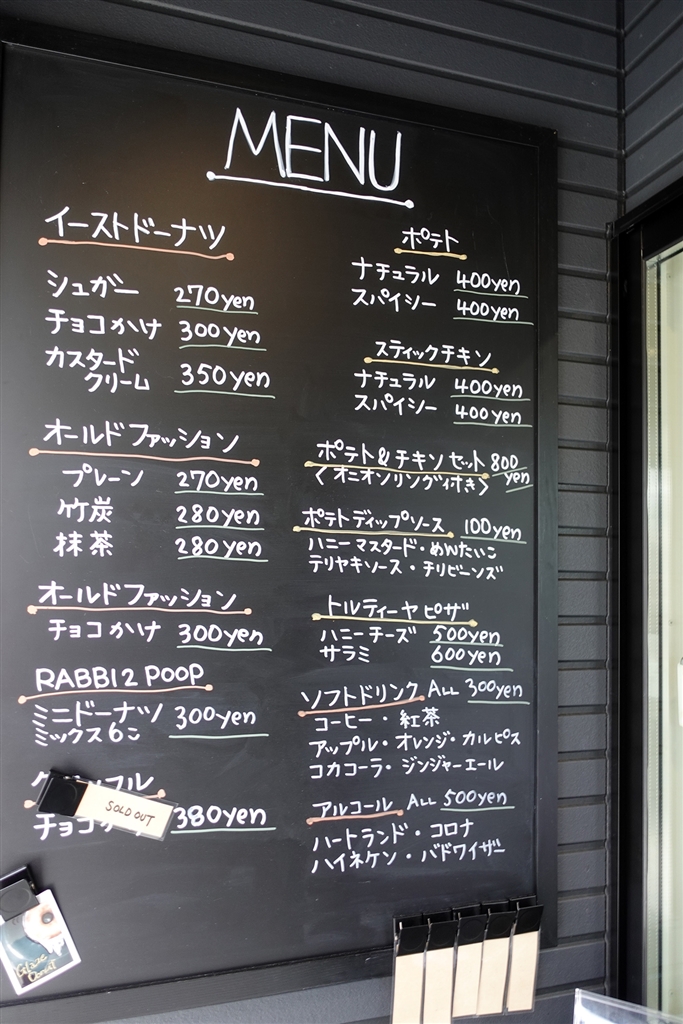 MENU
イーストドーナツ
シュガー 270yen
チョコかけ 300yen
カスタード
クリーム 350yen
オールドファッション
プレーン 270yen
竹炭 280yen
抹茶 280yen
オールドファッション
チョコかけ 300yen
RABBI2 POOP
ミニドーナツ
ミックス6こ 300yen
フル
SOLD OUT
チョコ 380yen
ポテト
ナチュラル 400yen
スパイシー 400yen
スティックチキン
ナチュラル 400yen
スパイシー 400yen
ポテト&チキンセット 800
yen
〈オニオンリング付き〉
ポテトディップソース 100yen
ハニーマスタード・めんたいこ
テリヤキソース・チリビーンズ
トルティーヤピザ
ハニーチーズ 500yen
サラミ 600yen
ソフトドリンク ALL 300yen
コーヒー・紅茶
アップル・オレンジ・カルピス
コカコーラ・ジンジャーエール
アルコール ALL 500yen
ハートランド・コロナ
ハイネケン・バドワイザー